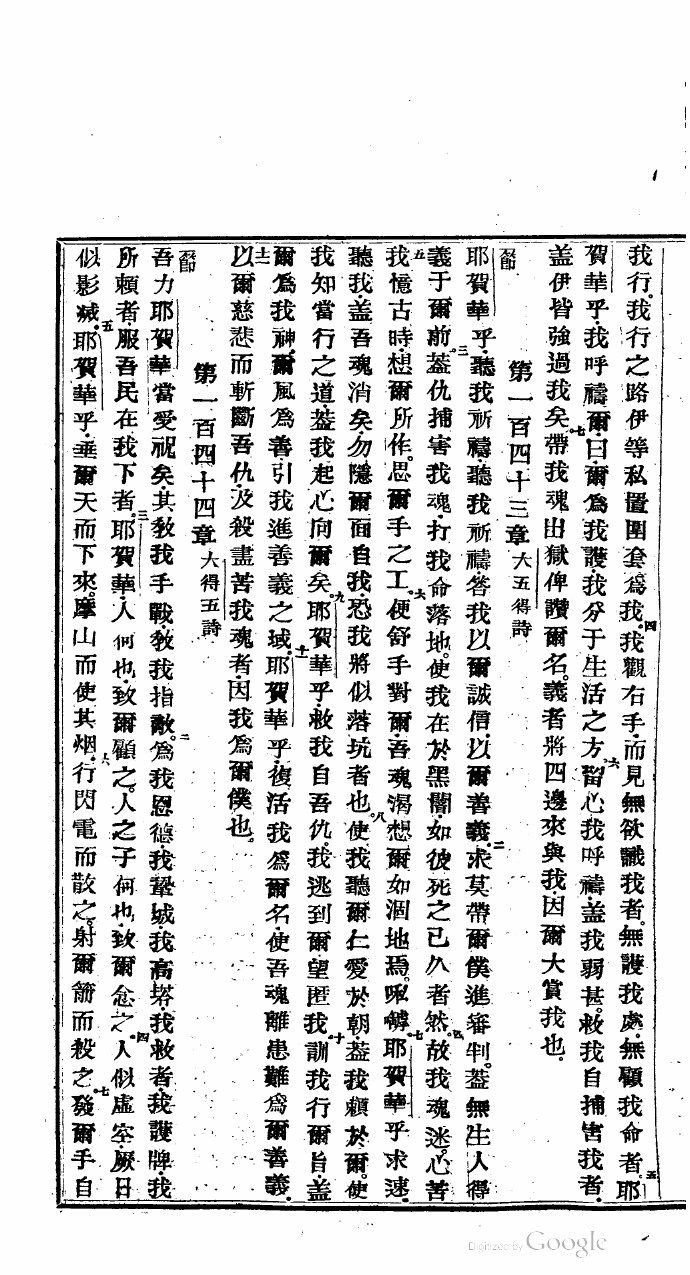 我行。我行之路伊等私置圈套爲我。四我觀右手·而見無欲識我者。無護我處·無顧我命者。五耶
賀華乎·我呼禱爾·曰·爾爲我護·我分于生活之方。六畱心我呼禱·盖我弱甚。救我自捕害我者·
盖伊皆強過我矣。七帶我魂出獄俾讚爾名。義者將四邊來與我·因爾大賞我也。
第一百四十三章 大五得詩
節 耶賀華乎·聽我祈禱·聽我祈禱·答我以爾誠信·以爾善義。二求莫帶爾僕進審判。盖無生人得
義于爾前。三盖仇捕害我魂·打我命落地。使我在於黑闇·如彼死之已久者然。四故我魂迷。心苦
五我憶古時·想爾所作。思爾手之工。六便舒手對爾·吾魂渴想爾如涸地焉。𠺕𡃤七耶賀華乎求速
聽我·盖吾魂消矣·勿隱爾面自我·恐我將似落坑者也。八使我聽爾仁愛於朝·盖我賴於爾·使
我知當行之道·盖我起心向爾矣。九耶賀華乎·救我自吾仇。我逃到爾望匿我。十訓我行爾旨·盖
爾爲我神。爾風爲善·引我進善義之域。十一耶賀華乎·復活我爲爾名·使吾魂離患難爲爾善義。
十二以爾慈悲而斬斷吾仇·及殺盡苦我魂者·因我爲爾僕也。
第一百四十四章 大得五詩
節 吾力耶賀華當受祝矣·其敎我手戰·敎我指敵。二爲我恩德·我鞏城·我高塔·我救者·我護牌·我
所賴者·服吾民在我下者。三耶賀華·人何也·致爾顧之。人之子何也·致爾念之。四人似虛空·厥日
似影㓕。五耶賀華乎·垂爾天而下來。摩山而使其烟。六行閃電而散之。射爾箭而殺之。七發爾手自
Digitized by Google